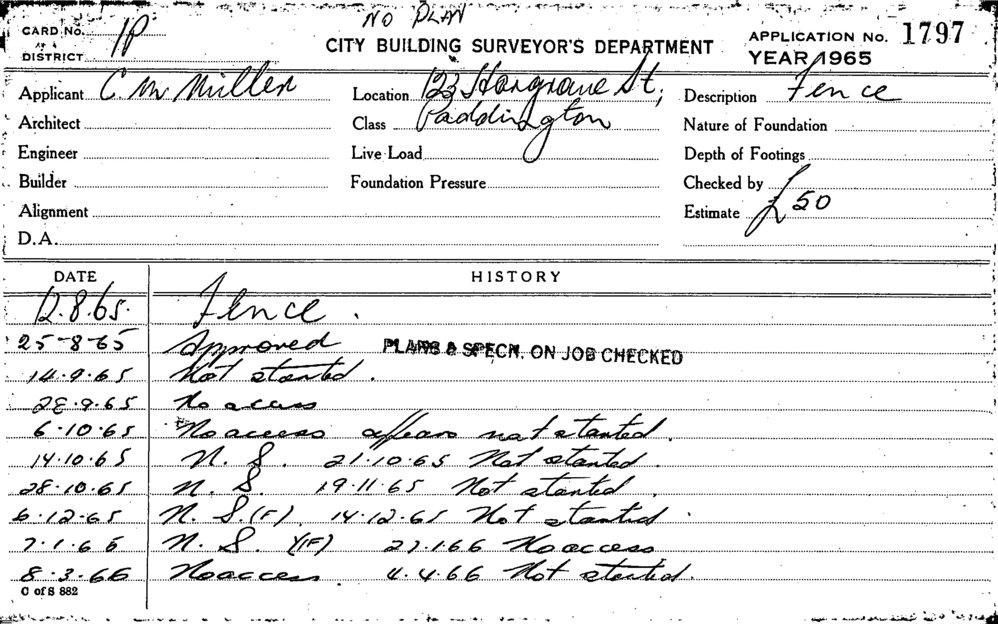 NO PLAN
CARD No. 1P
DISTRICT
CITY BUILDING SURVEYOR'S DEPARTMENT
APPLICATION No. 1797
YEAR 1965
Applicant C. M. Miller Location 123 Hargrave St, Description Fence
Architect Class Paddington Nature of Foundation
Engineer Live Load Depth of Footings
Builder Foundation Pressure Checked by
Alignment Estimate £50
D.A.
DATE HISTORY
12.8.65. Fence.
25-8-65 Approved PLANS & SPECN. ON JOB CHECKED
14.9.65 Not started.
28.9.65 No access
6.10.65 No access appears not started.
14.10.65 N. S. 21.10.65 Not started.
28.10.65 N. S. 19.11.65 Not started.
6.12.65 N. S. (F) 14.12.65 Not started.
7.1.66 N. S. (F) 27.1.66 No access
8.3.66 No access. 4.4.66 Not started.
C of S 882